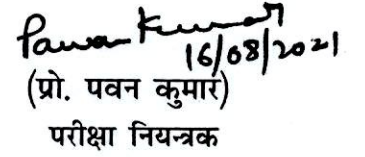 Pawan Kumar
16/08/2021
(प्रो. पवन कुमार)
परीक्षा नियन्त्रक